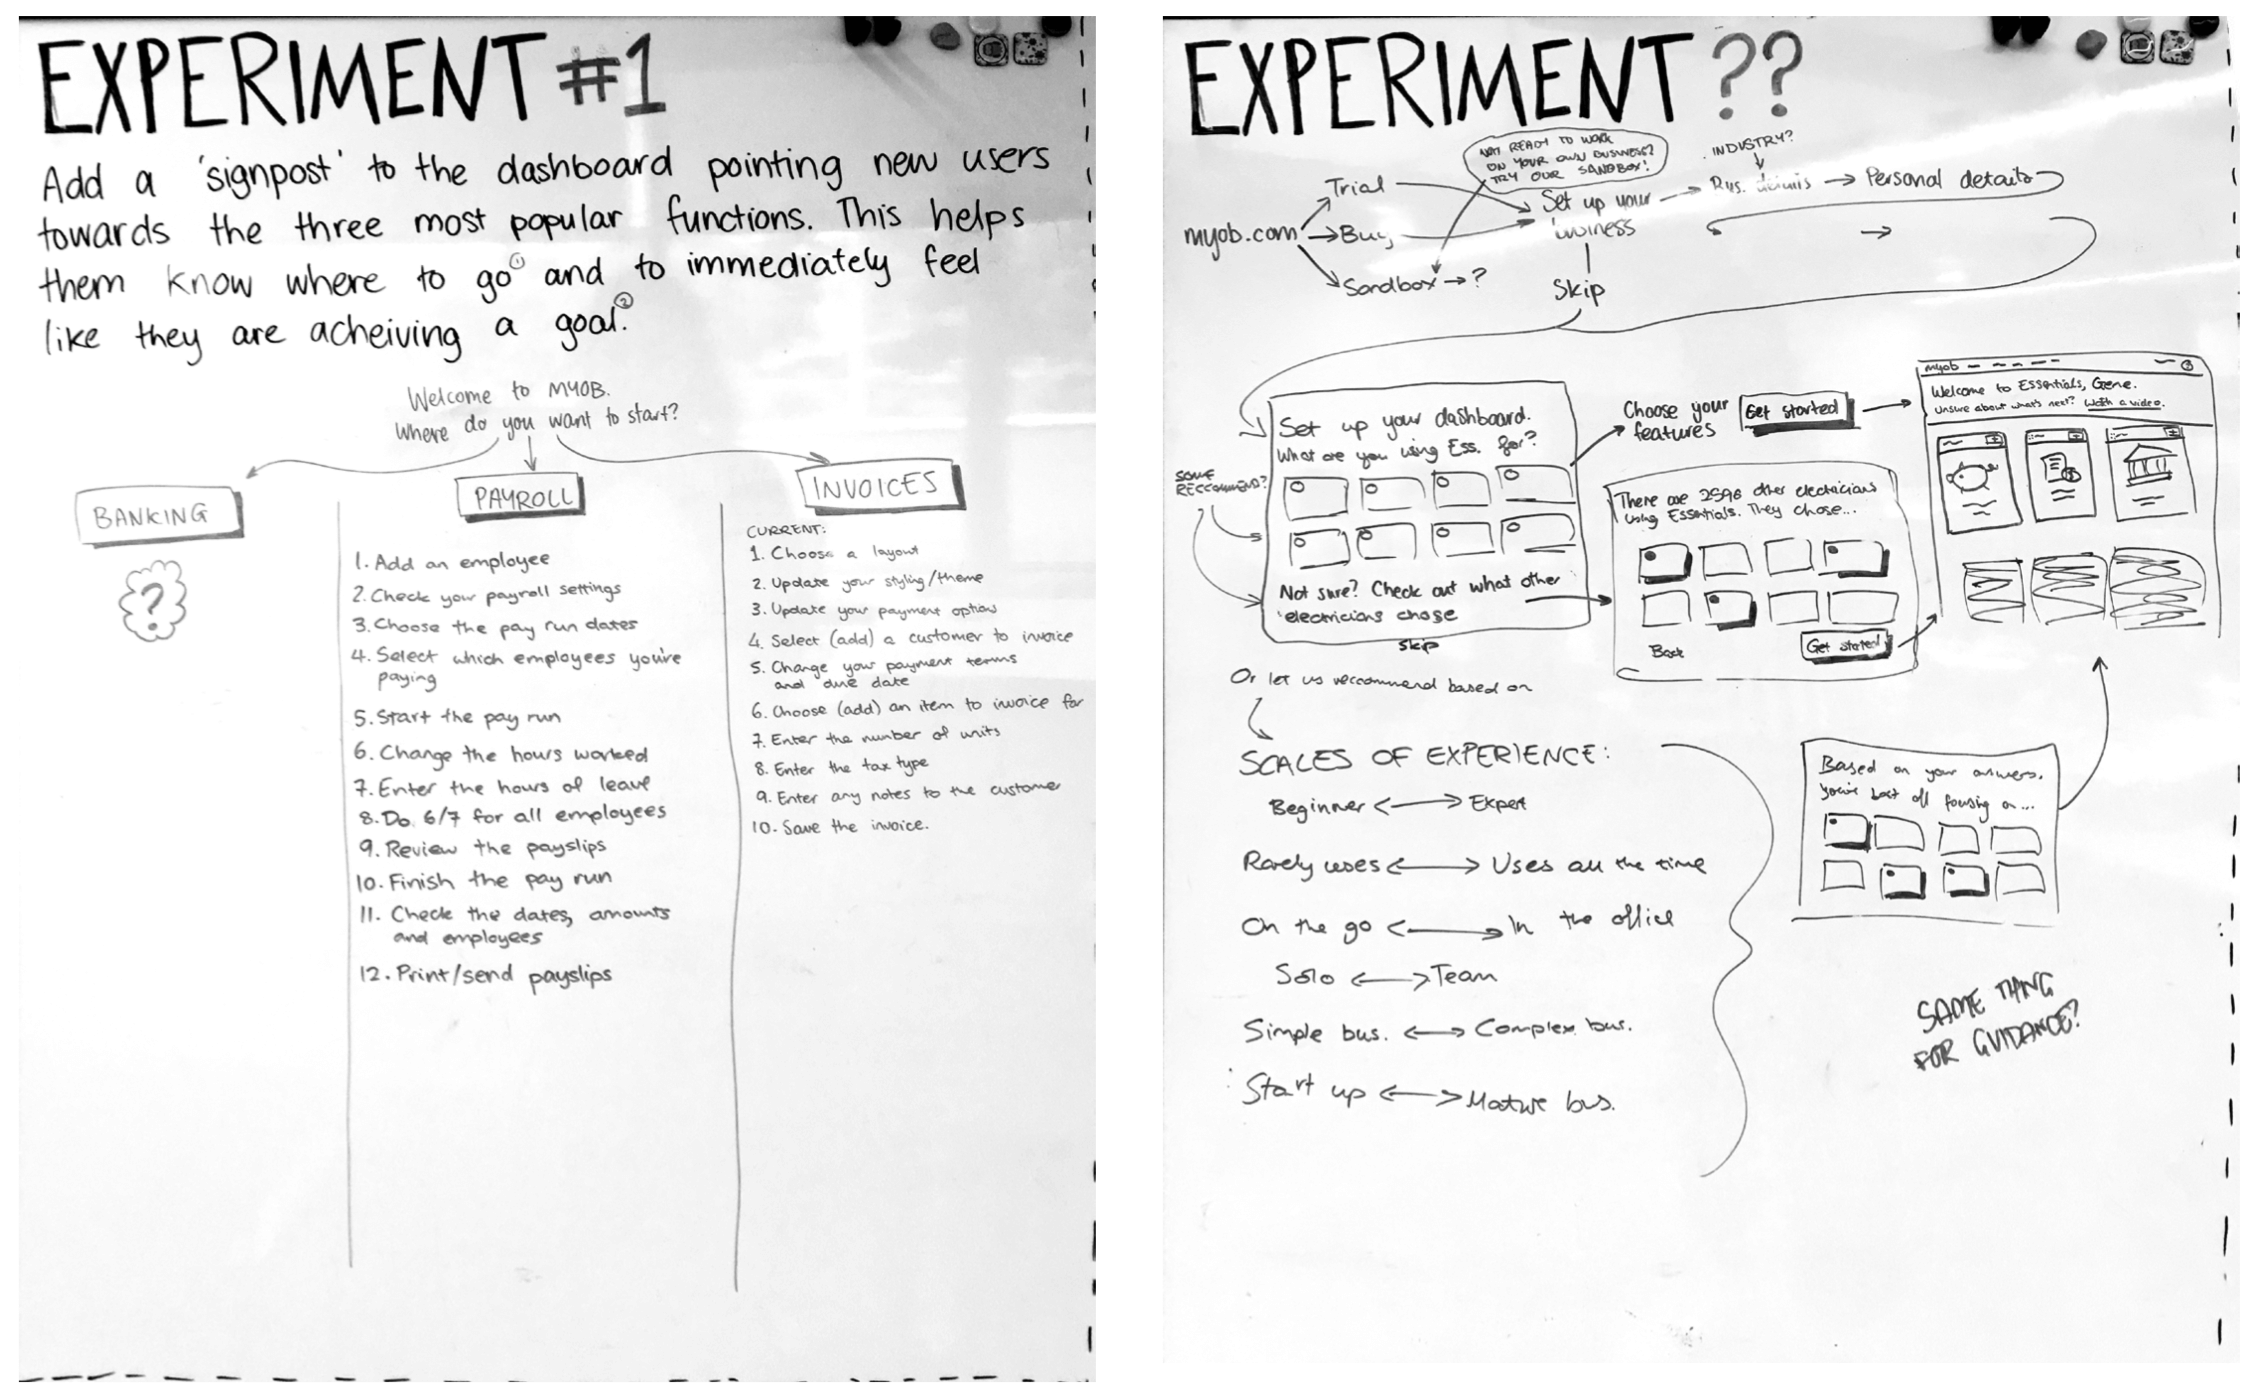 EXPERIMENT #1
Add a 'signpost' to the dashboard pointing new users
towards the three most popular functions. This helps
them know where to go① and to immediately feel
like they are acheiving a goal.②
Welcome to MYOB.
Where do you want to start?
BANKING
?
PAYROLL
1. Add an employee
2. Check your payroll settings
3. Choose the pay run dates
4. Select which employees you're
paying
5. Start the pay run
6. Change the hours worked
7. Enter the hours of leave
8. Do 6/7 for all employees
9. Review the payslips
10. Finish the pay run
11. Check the dates, amounts
and employees
12. Print/send payslips
INVOICES
CURRENT:
1. Choose a layout
2. Update your styling/theme
3. Update your payment options
4. Select (add) a customer to invoice
5. Change your payment terms
and due date
6. Choose (add) an item to invoice for
7. Enter the number of units
8. Enter the tax type
9. Enter any notes to the customer
10. Save the invoice.
EXPERIMENT ??
NOT READY TO WORK
ON YOUR OWN BUSINESS?
TRY OUR SANDBOX!
INDUSTRY?
myob.com
Trial
Buy
Sandbox → ?
Set up your
business
Bus. details → Personal details
Skip
SOME
RECCOMMEND?
Set up your dashboard.
What are you using Ess. for?
Not sure? Check out what other
electricians chose
Skip
Choose your
features
Get started
There are 2596 other electricians
using Essentials. They chose...
Back
Get started
myob
Welcome to Essentials, Gene.
Unsure about what's next? Watch a video.
Or let us reccommend based on
SCALES OF EXPERIENCE:
Beginner ↔ Expert
Rarely uses ↔ Uses all the time
On the go ↔ In the office
Solo ↔ Team
Simple bus. ↔ Complex bus.
Start up ↔ Mature bus.
Based on your answers,
you're best off focusing on...
SAME THING
FOR GUIDANCE?